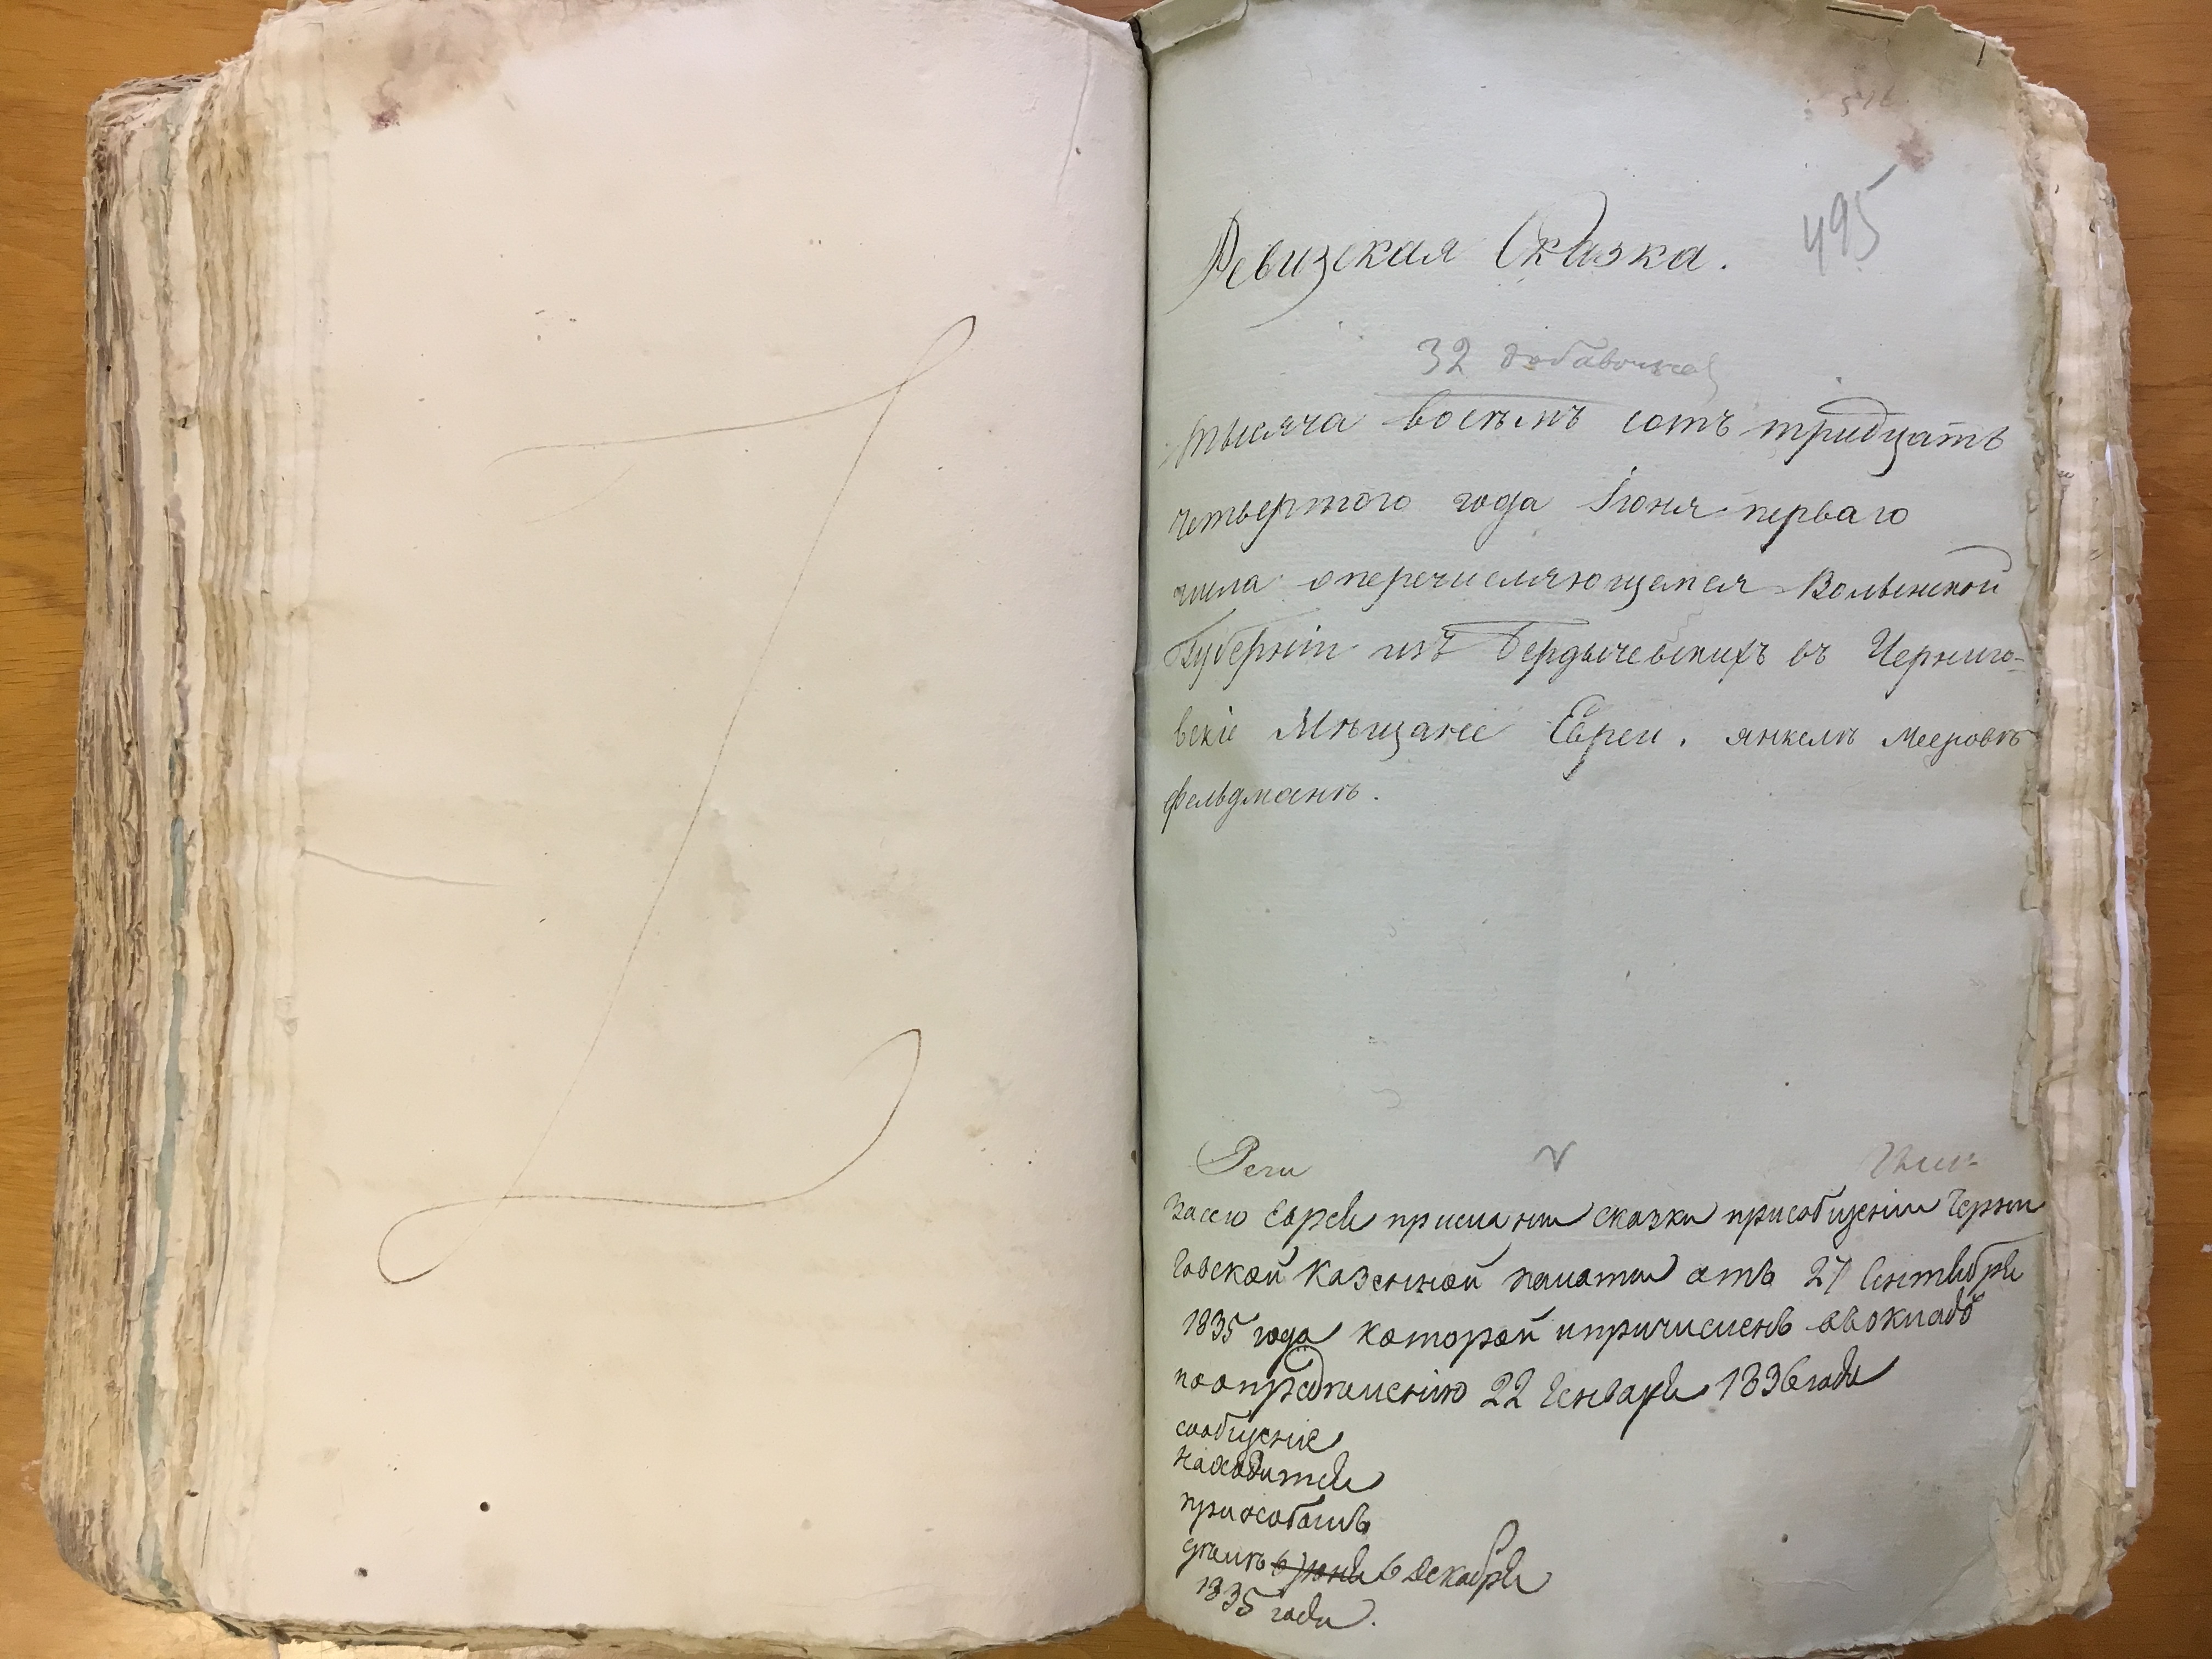 495
Ревизская Сказка.
32 добавочная
тысяча восемъ сотъ тридцать
четвертого года Іюня перваго
числа оперечисляющемся Волынской
Губерніи изъ Бердычевскихъ въ Черниго-
вскіе Мѣщане Евреи. янкель Мееровъ
фельдманъ.
Засею Еврей присланы сказки присобщеніи Черни
говской Казенной палаты отъ 27 Сентября
1835 года которой и причисленъ въ окладъ
поопредѣленію 22 Генваря 1836 года
сообщеніе
находится
при особомъ
дѣлѣ 6 Июня 6 декабря
1835 года.